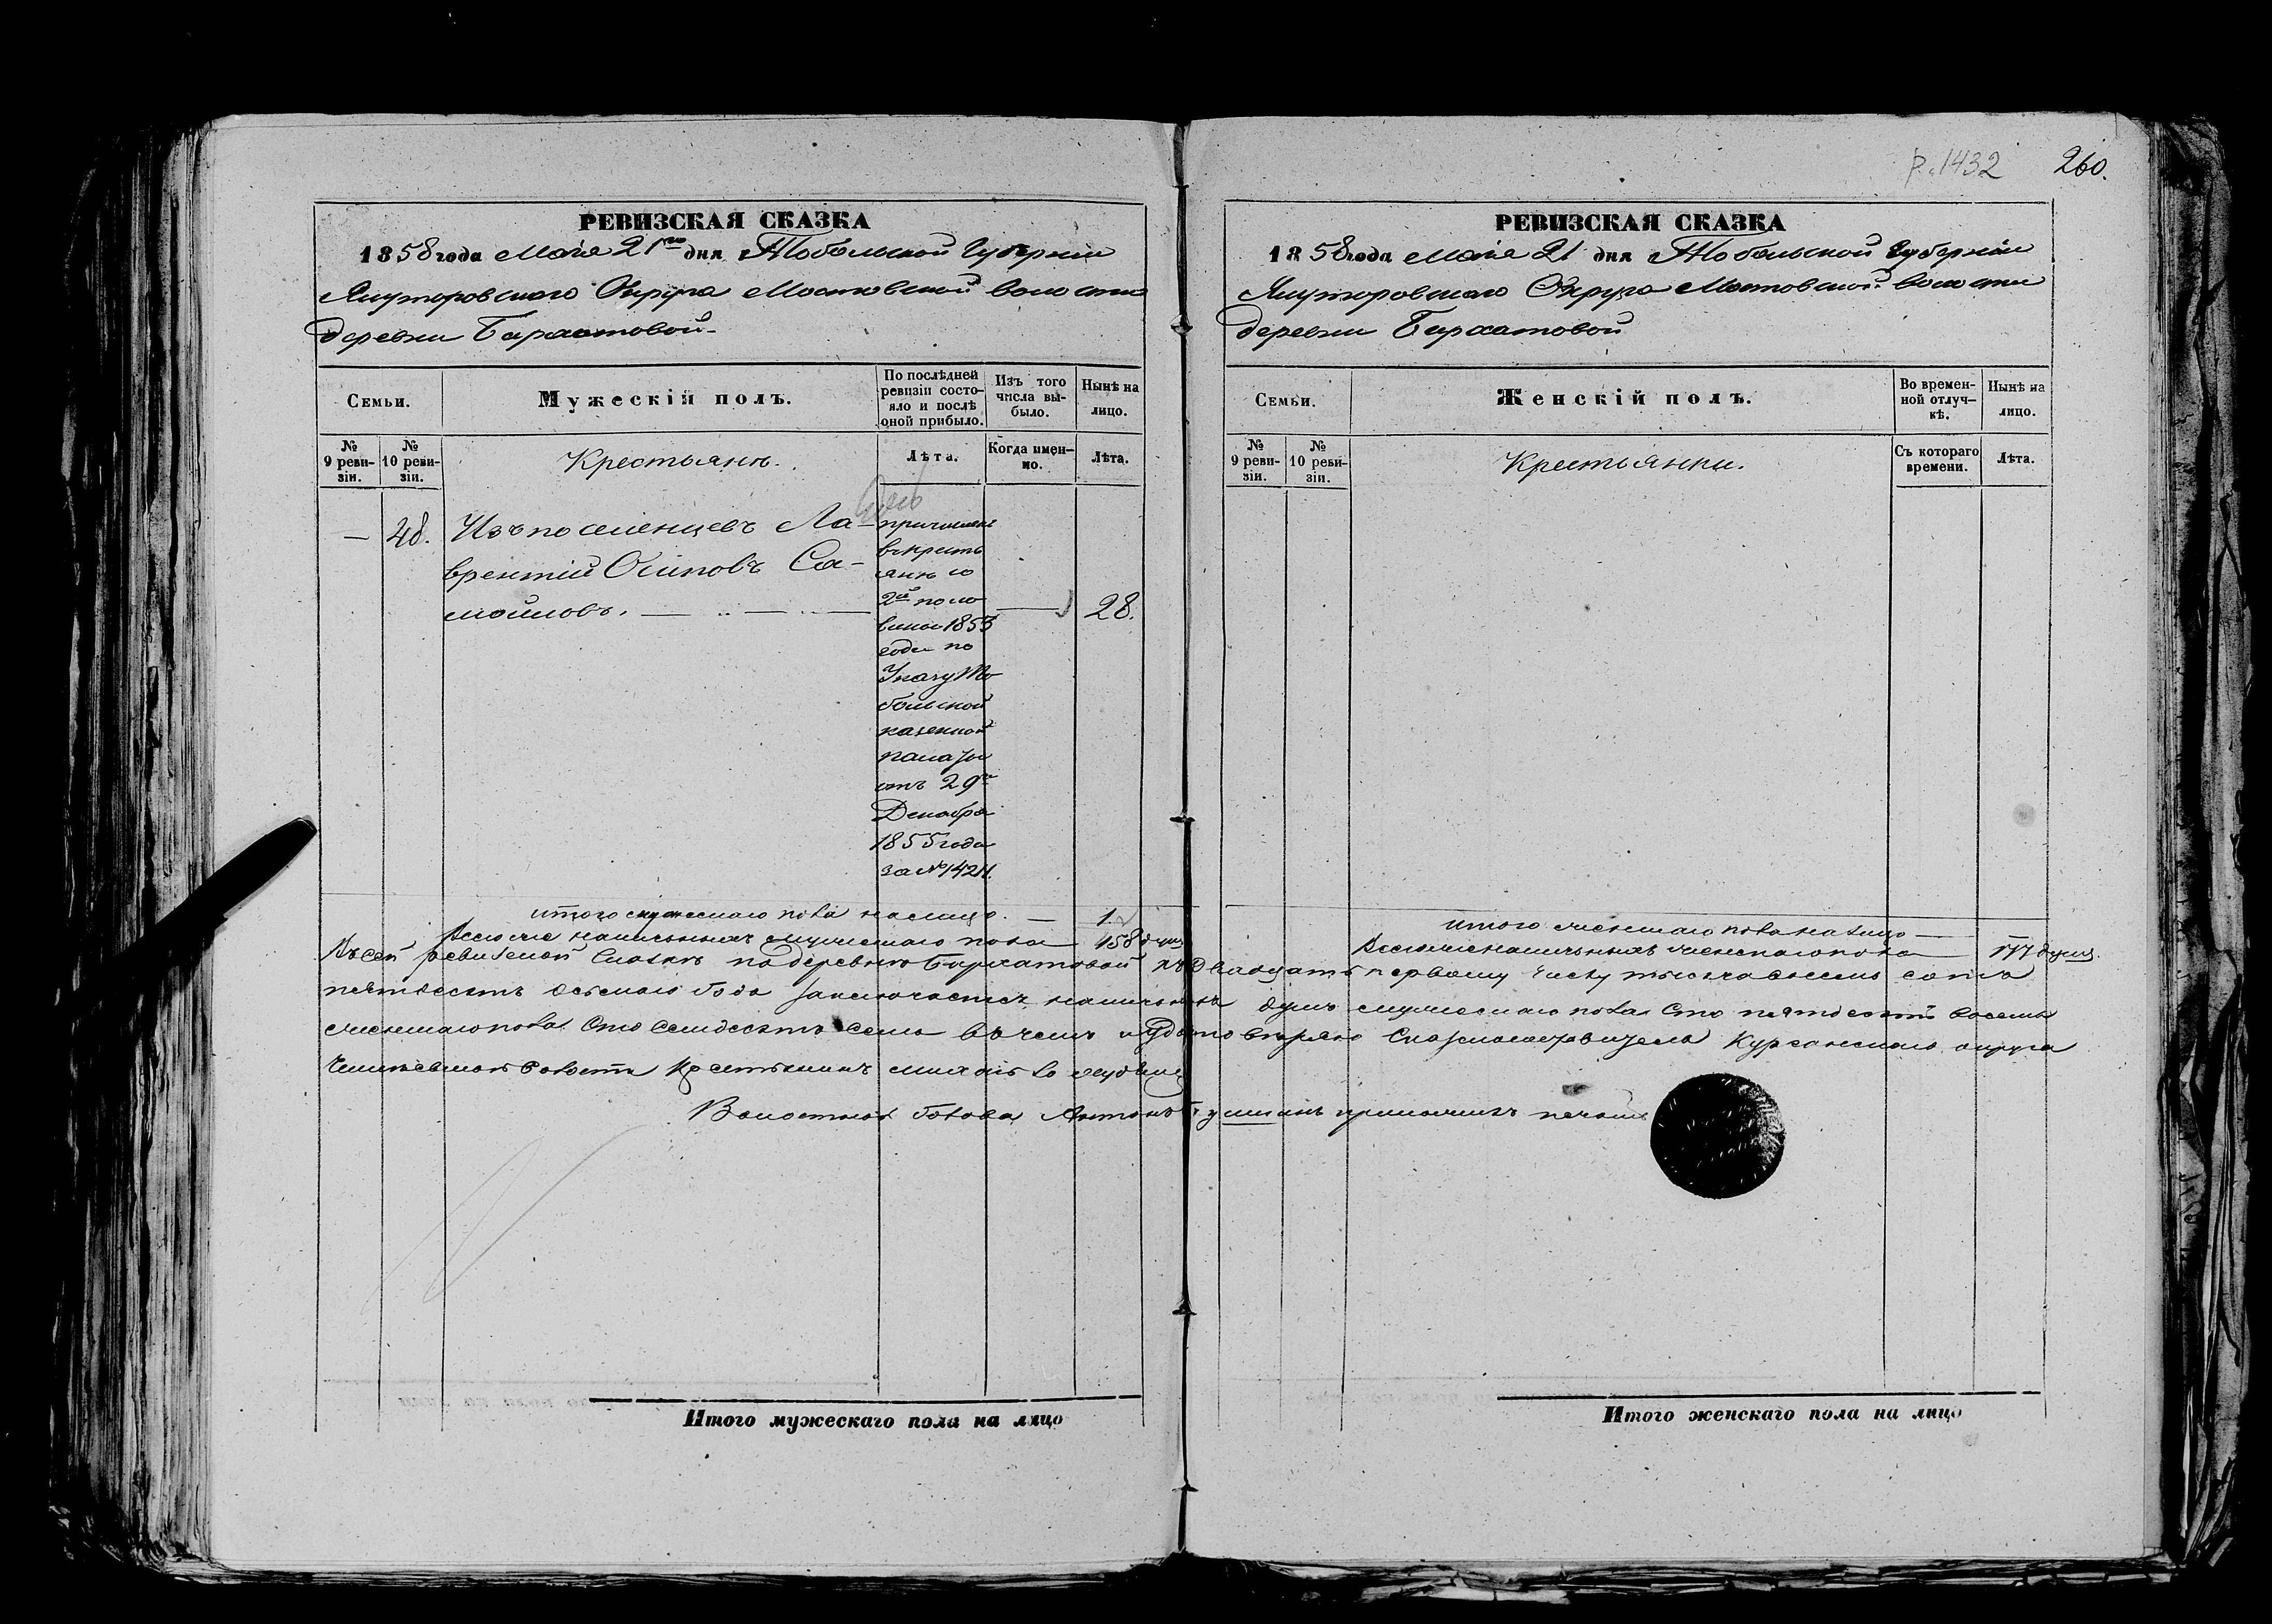 р. 1432 260.
РЕВИЗСКАЯ СКАЗКА
1858 года Мая 21го дня Тобольской Губернии
Ялуторовскаго Округа Мостовской волости
деревни Бархатовой
Семьи.
Мужескій полъ.
По послѣдней ревизіи состо-
яло и послѣ оной прибыло.
Изъ того числа вы-
было.
Нынѣ на лицо.
№ 9 реви-
зіи.
№ 10 реви-
зіи.
Крестьянъ.
Лѣта.
Когда имен-
но.
Лѣта.
— 48. Изъ поселенцевъ Ла-
врентій Осиповъ Са-
мойловъ. 28.
причислен
въ кресть
яне со
2й поло
вины 1853
года по
Указу То
больской
казенной
палаты
отъ 29го
Декабря
1855 года
за № 14211.
итого мужескаго пола налицо — 1.
Всего же наличныхъ мужескаго пола 158 душъ
РЕВИЗСКАЯ СКАЗКА
1858 года Мая 21 дня Тобольской Губерніи
Ялуторовскаго Округа Мостовской волости
деревни Бархатовой
Семьи.
Женскій полъ.
Во времен-
ной отлуч-
кѣ.
Нынѣ на лицо.
№ 9 реви-
зіи.
№ 10 реви-
зіи.
Крестьянки.
Съ котораго времени.
Лѣта.
итого женскаго пола налицо —
Всего же наличныхъ женскаго пола 177 душъ.
Въ сей ревизской Сказкѣ по деревнѣ Бархатовой къ двадцать первому числу тысяча восемь сотъ
пятдесятъ осьмаго Года заключается наличныхъ душъ мужескаго пола Сто пятдесятъ восемь
женскаго пола Сто семдесятъ семь въ чемъ и удостоверяю Сказкосоставитель Курганскаго округа
волости Крестьянинъ
Волостной Голова Антонъ приложилъ печать
Итого мужескаго пола на лицо
Итого женскаго пола на лицо